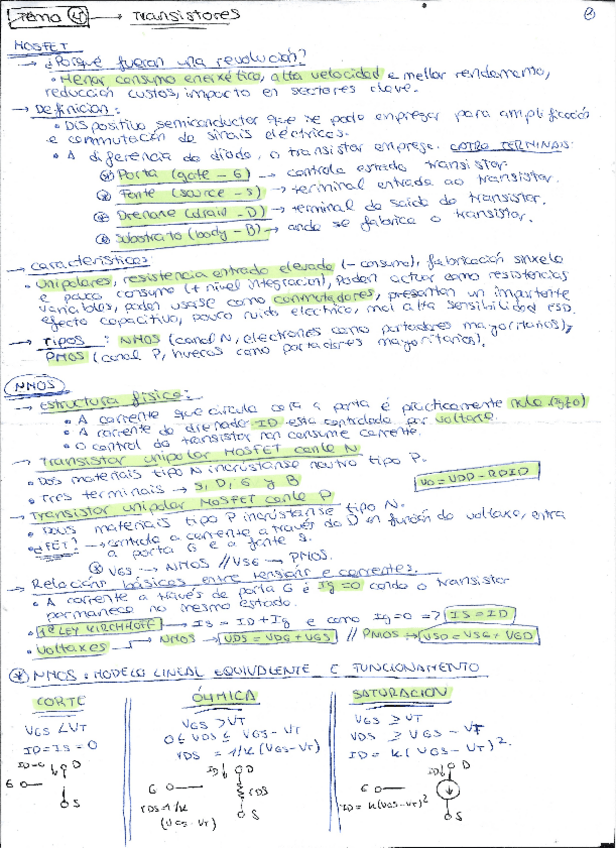 Tema 4 → Transistores
MOSFET
→ ¿Porqué fueron una revolución?
• Menor consumo enerxético, alta velocidade e mellor rendemento,
reducción custos, impacto en sectores clave.
→ Definición:
• Dispositivo semiconductor que se pode empregar para amplificación
e conmutación de sinais eléctricos.
• A diferencia do diodo, o transistor emprega CATRO TERMINAIS:
Porta (gate - G) → controla estado transistor.
Fonte (source - S) → terminal entrada ao transistor.
Drenaxe (drain - D) → terminal da saída do transistor.
Substrato (body - B) → onde se fabrica o transistor.
→ Características:
• Unipolares, resistencia entrada elevada (- consumo), fabricación sinxela
e pouco consumo (+ nivel integración), poden actuar como resistencias
variables, poden usarse como conmutadores, presentan un importante
efecto capacitivo, pouco ruido eléctrico, moi alta sensibilidad ESD.
→ Tipos: NMOS (canal N, electrones como portadores mayoritarios),
PMOS (canal P, huecos como portadores mayoritarios).
NMOS
→ Estructura física:
• A corrente que circula cara a porta é practicamente nula (Ig≈0)
• A corrente do drenador ID esta controlada por voltaxe.
• O control do transistor non consume corrente.
→ Transistor unipolar MOSFET canle N
• Dos materiais tipo N incrústanse neutro tipo P.
• Tres terminais → S, D, G y B
VO = VDD - RDID
→ Transistor unipolar MOSFET canle P
• Dous materiais tipo P incrústanse tipo N.
• ¿FET? → controla a corrente a través da D en función do voltaxe, entra
a porta G e a fonte S.
VGS → NMOS // VSG → PMOS.
→ Relacións básicas entre tensións e correntes.
• A corrente a través de porta G é Ig = 0 cando o transistor
permanece no mesmo estado.
• 1ª LEY KIRCHHOFF → IS = ID + Ig e como Ig = 0 => IS = ID
• Voltaxes → NMOS → VDS = VDG + VGS // PMOS → VSD = VSG + VGD
NMOS: MODELO LINEAL EQUIVALENTE E FUNCIONAMENTO
CORTE
VGS < VT
ID = IS = 0
ID=0
D
G
S
ÓHMICA
VGS > VT
0 ≤ VDS ≤ VGS - VT
rDS = 1/k (VGS - VT)
ID
D
G
rDS
rDS 1/k
(VGS - VT)
S
SATURACIÓN
VGS ≥ VT
VDS ≥ VGS - VT
ID = k (VGS - VT)².
ID
D
G
ID = k (VGS - VT)²
S